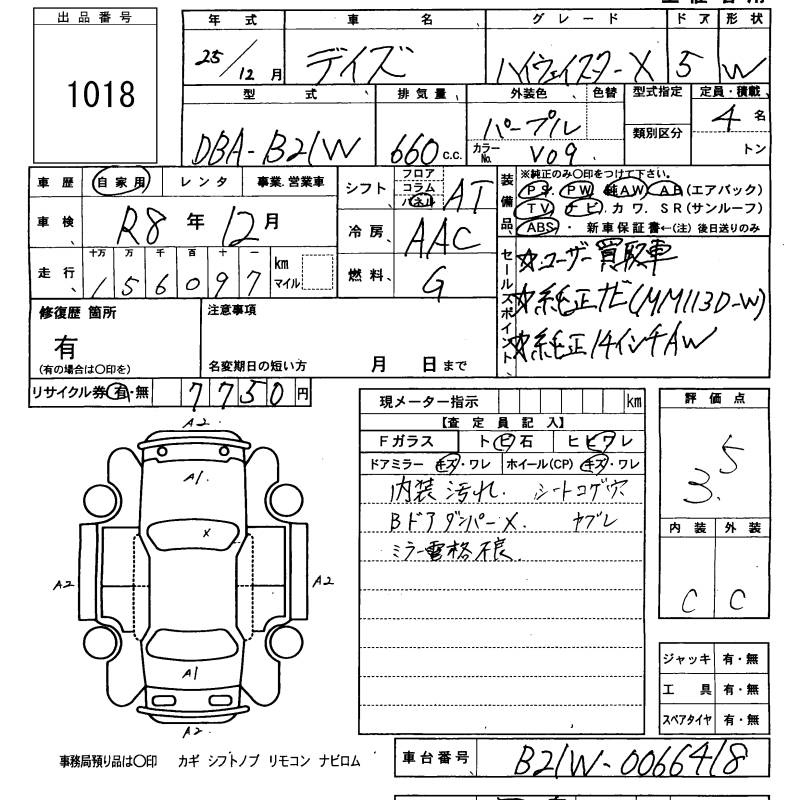 出品番号
1018
年式 車名 グレード ドア 形状
25/12月 デイズ ハイウェイスターX 5 W
型式 排気量 外装色 色替 型式指定 定員・積載
DBA-B21W 660c.c. パープル 類別区分 4名
カラーNo. V09 トン
車歴 自家用 レンタ 事業.営業車
車検 R8年12月
走行 十万 万 千 百 十 一
156097 km マイル
シフト フロア コラム パネル AT
冷房 AAC
燃料 G
装備品 ※純正のみ〇印をつけて下さい。
PS. PW. 純AW. AB(エアバック)
TV. ナビ. カワ. SR(サンルーフ)
ABS. 新車保証書←(注)後日送りのみ
セールスポイント
☆ユーザー買取車
☆純正ナビ(MM113D-W)
☆純正14インチAW
修復歴 箇所
有
(有の場合は〇印を)
注意事項
名変期日の短い方 月 日まで
リサイクル券 有・無 7750円
現メーター指示 km
【査定員記入】
Fガラス トビ石 ヒビワレ
ドアミラー キズ・ワレ ホイール(CP) キズ・ワレ
内装汚れ. シートコゲ穴
Bドアダンパー× ヤブレ
ミラー電格不良.
評価点
3.5
内装 外装
C C
A2
A1
X
A2 A2
A1
A2
ジャッキ 有・無
工具 有・無
スペアタイヤ 有・無
事務局預り品は〇印 カギ シフトノブ リモコン ナビロム
車台番号 B21W-0066418